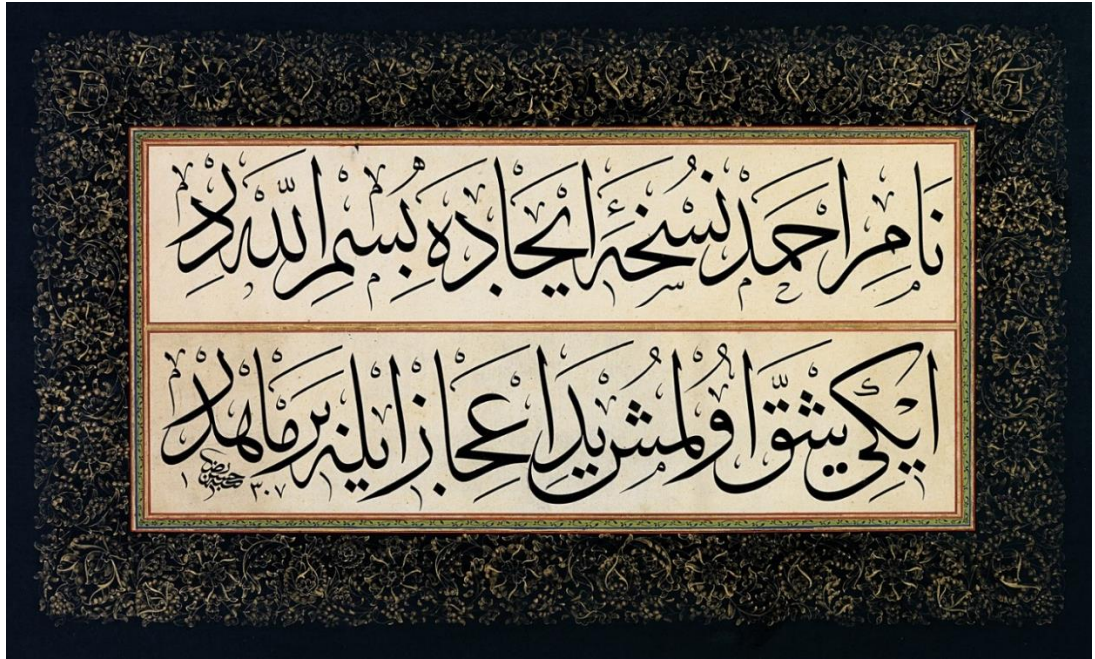 نَامِ اَحْمَدْ نُسْخَۀِ اِيجَادَه بِسْمِ اللّٰه دِرْ
اِيكِي شَقّ اُولْمُش يَدِ اِعْجَاز اِيلَه بِرْ مَاهْدِرْ
١٣٠٧